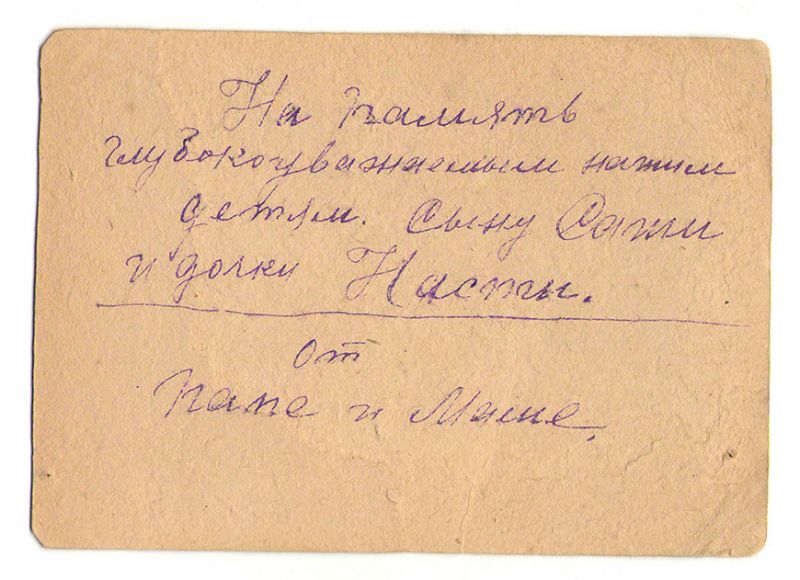 На память
глубокоуважаемым нашим
детям. Сыну Саши
и дочки Насти.
от
папе и Маме.